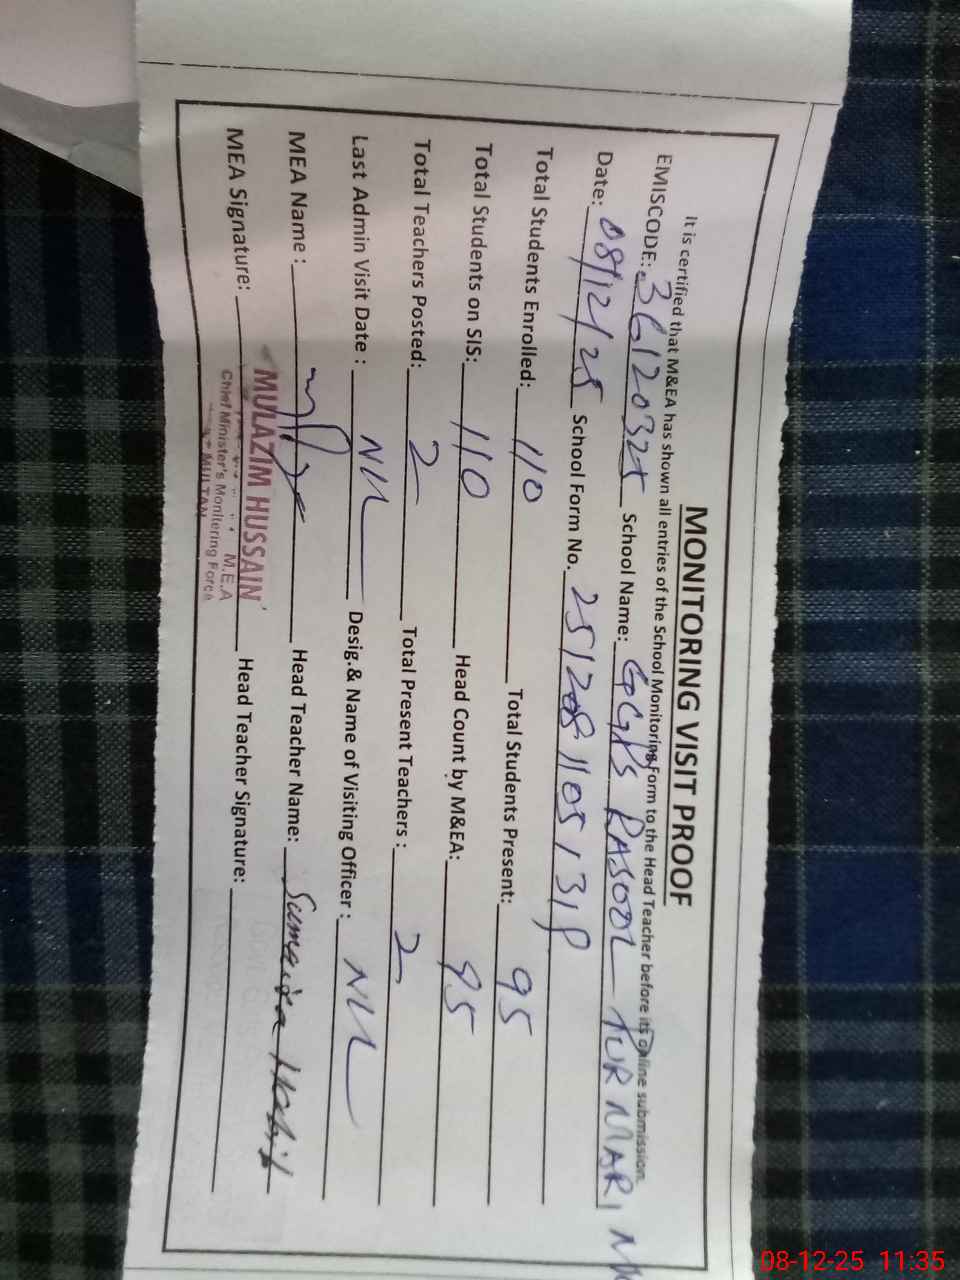 MONITORING VISIT PROOF
It is certified that M&EA has shown all entries of the School Monitoring Form to the Head Teacher before its online submission.
EMISCODE: School Name: GGPS RASOOL PUR MARI
Date: 08/12/25 School Form No.
Total Students Enrolled: 110 Total Students Present: 95
Total Students on SIS: 110 Head Count by M&EA: 95
Total Teachers Posted: 2 Total Present Teachers : 2
Last Admin Visit Date : NIL Desig.& Name of Visiting Officer : NIL
MEA Name : Head Teacher Name: Sumaira
MEA Signature: MULAZIM HUSSAIN Head Teacher Signature:
M.E.A
Chief Minister's Monitering Force
MULTAN
08-12-25 11:35